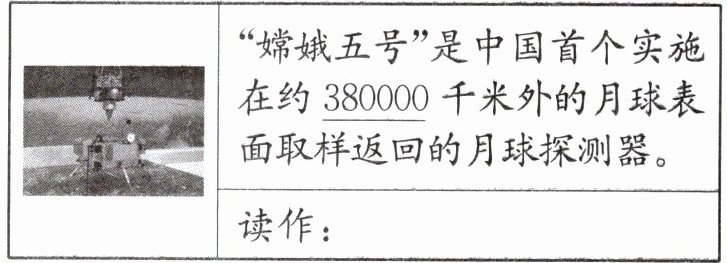 “嫦娥五号”是中国首个实施
在约 380000 千米外的月球表
面取样返回的月球探测器。
读作：